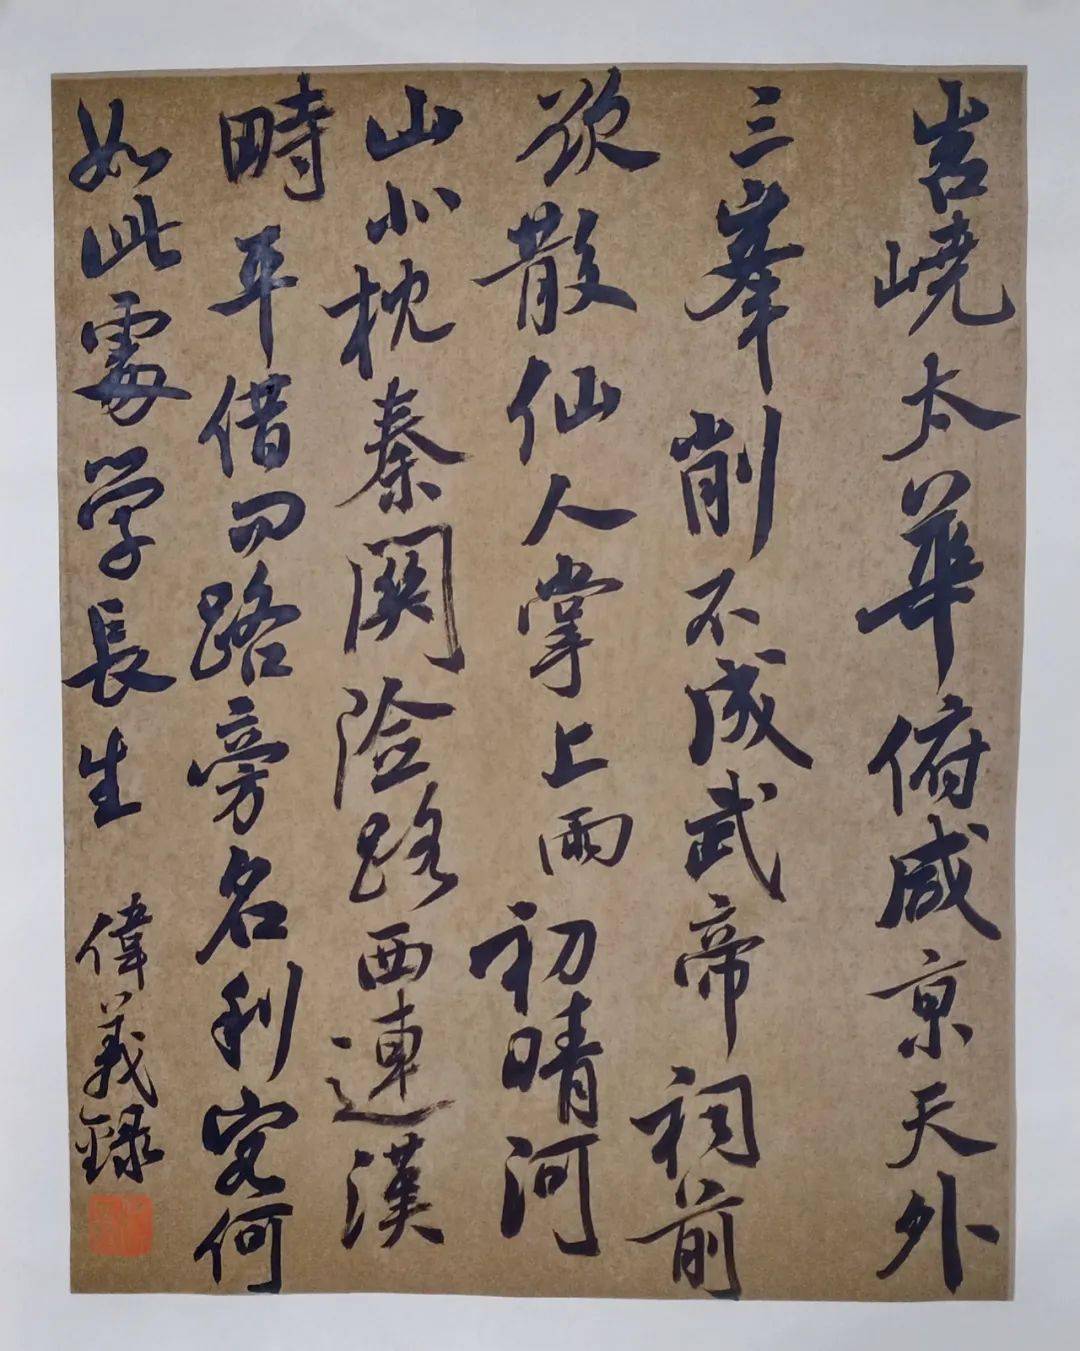 岧嶢太華俯咸京天外
三峯削不成武帝祠前
欲散仙人掌上雨初晴河
山北枕秦關险路西連漢
畤平借问路旁名利客何
如此處学長生 偉義錄